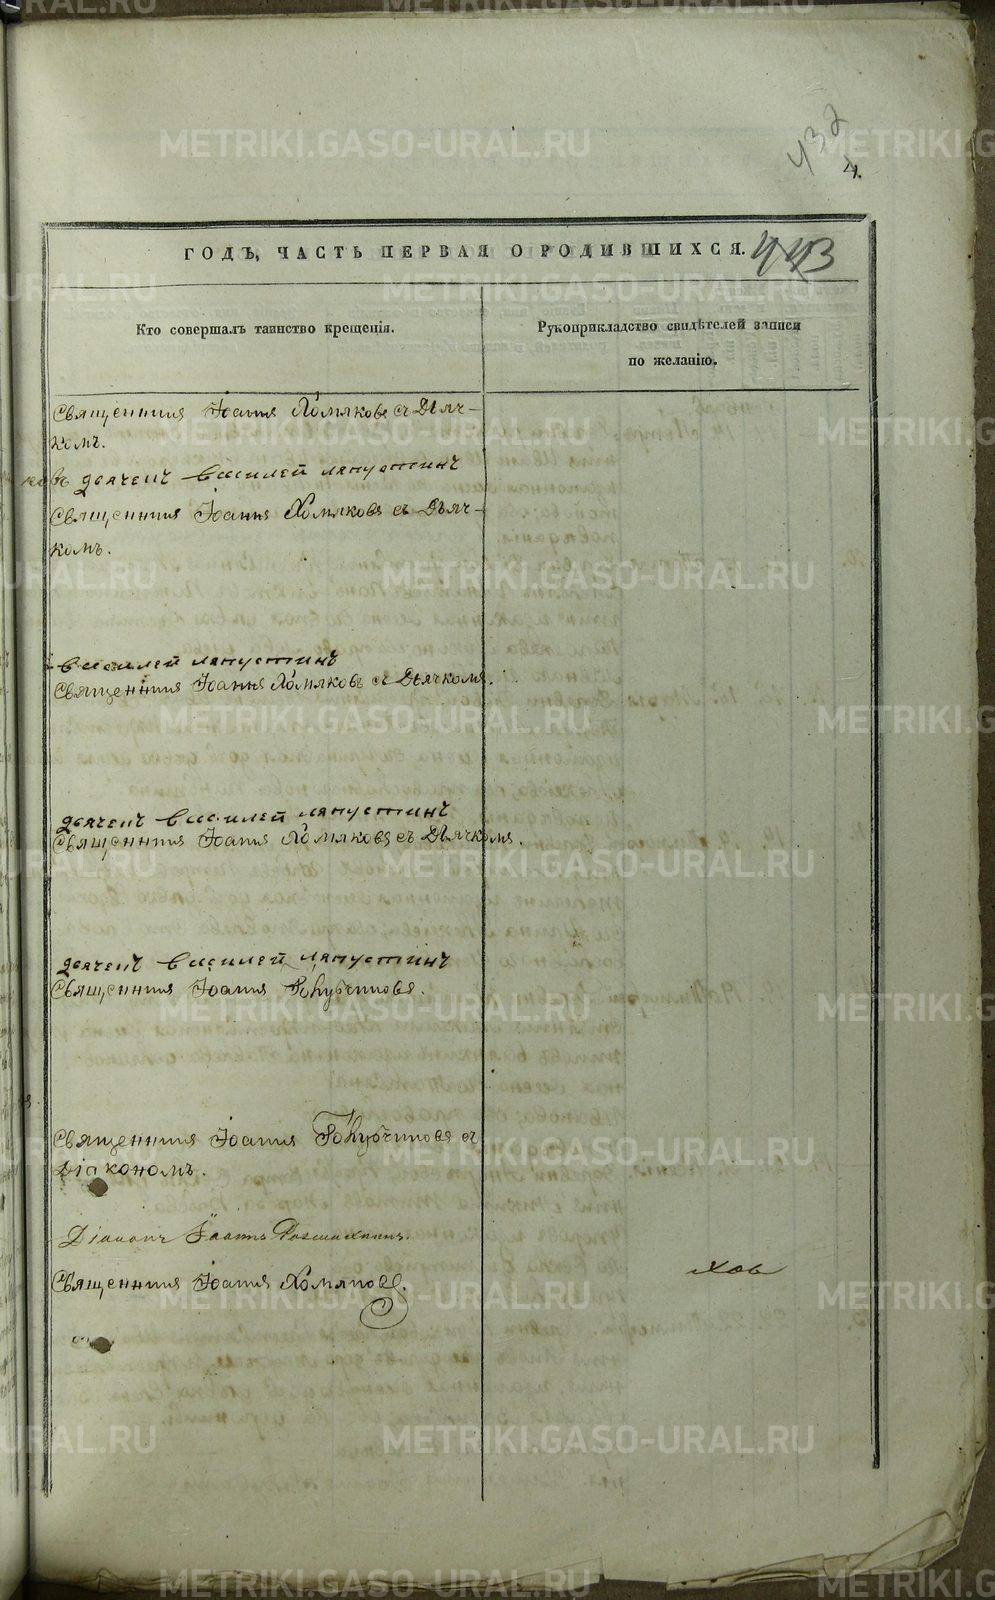 432
4.
ГОДЪ, ЧАСТЬ ПЕРВАЯ О РОДИВШИХСЯ.
443
Кто совершалъ таинство крещенія.
Рукоприкладство свидѣтелей записи
по желанію.
Священникъ Іоаннъ Хомяковъ съ Дьяч-
комъ.
дьячекъ василей ляпустинъ
Священникъ Іоаннъ Хомяковъ съ Дьяч-
комъ.
василей ляпустинъ
Священникъ Іоаннъ Хомяковъ съ Дьячкомъ.
дьячекъ василей ляпустинъ
Священникъ Іоаннъ Хомяковъ съ Дьячкомъ.
дьячекъ василей ляпустинъ
Священникъ Іоаннъ Голубчиковъ.
Священникъ Іоаннъ Голубчиковъ съ
Діакономъ.
Діаконъ Іоаннъ
Священникъ Іоаннъ Хомяковъ.
ховъ
METRIKI.GASO-URAL.RU